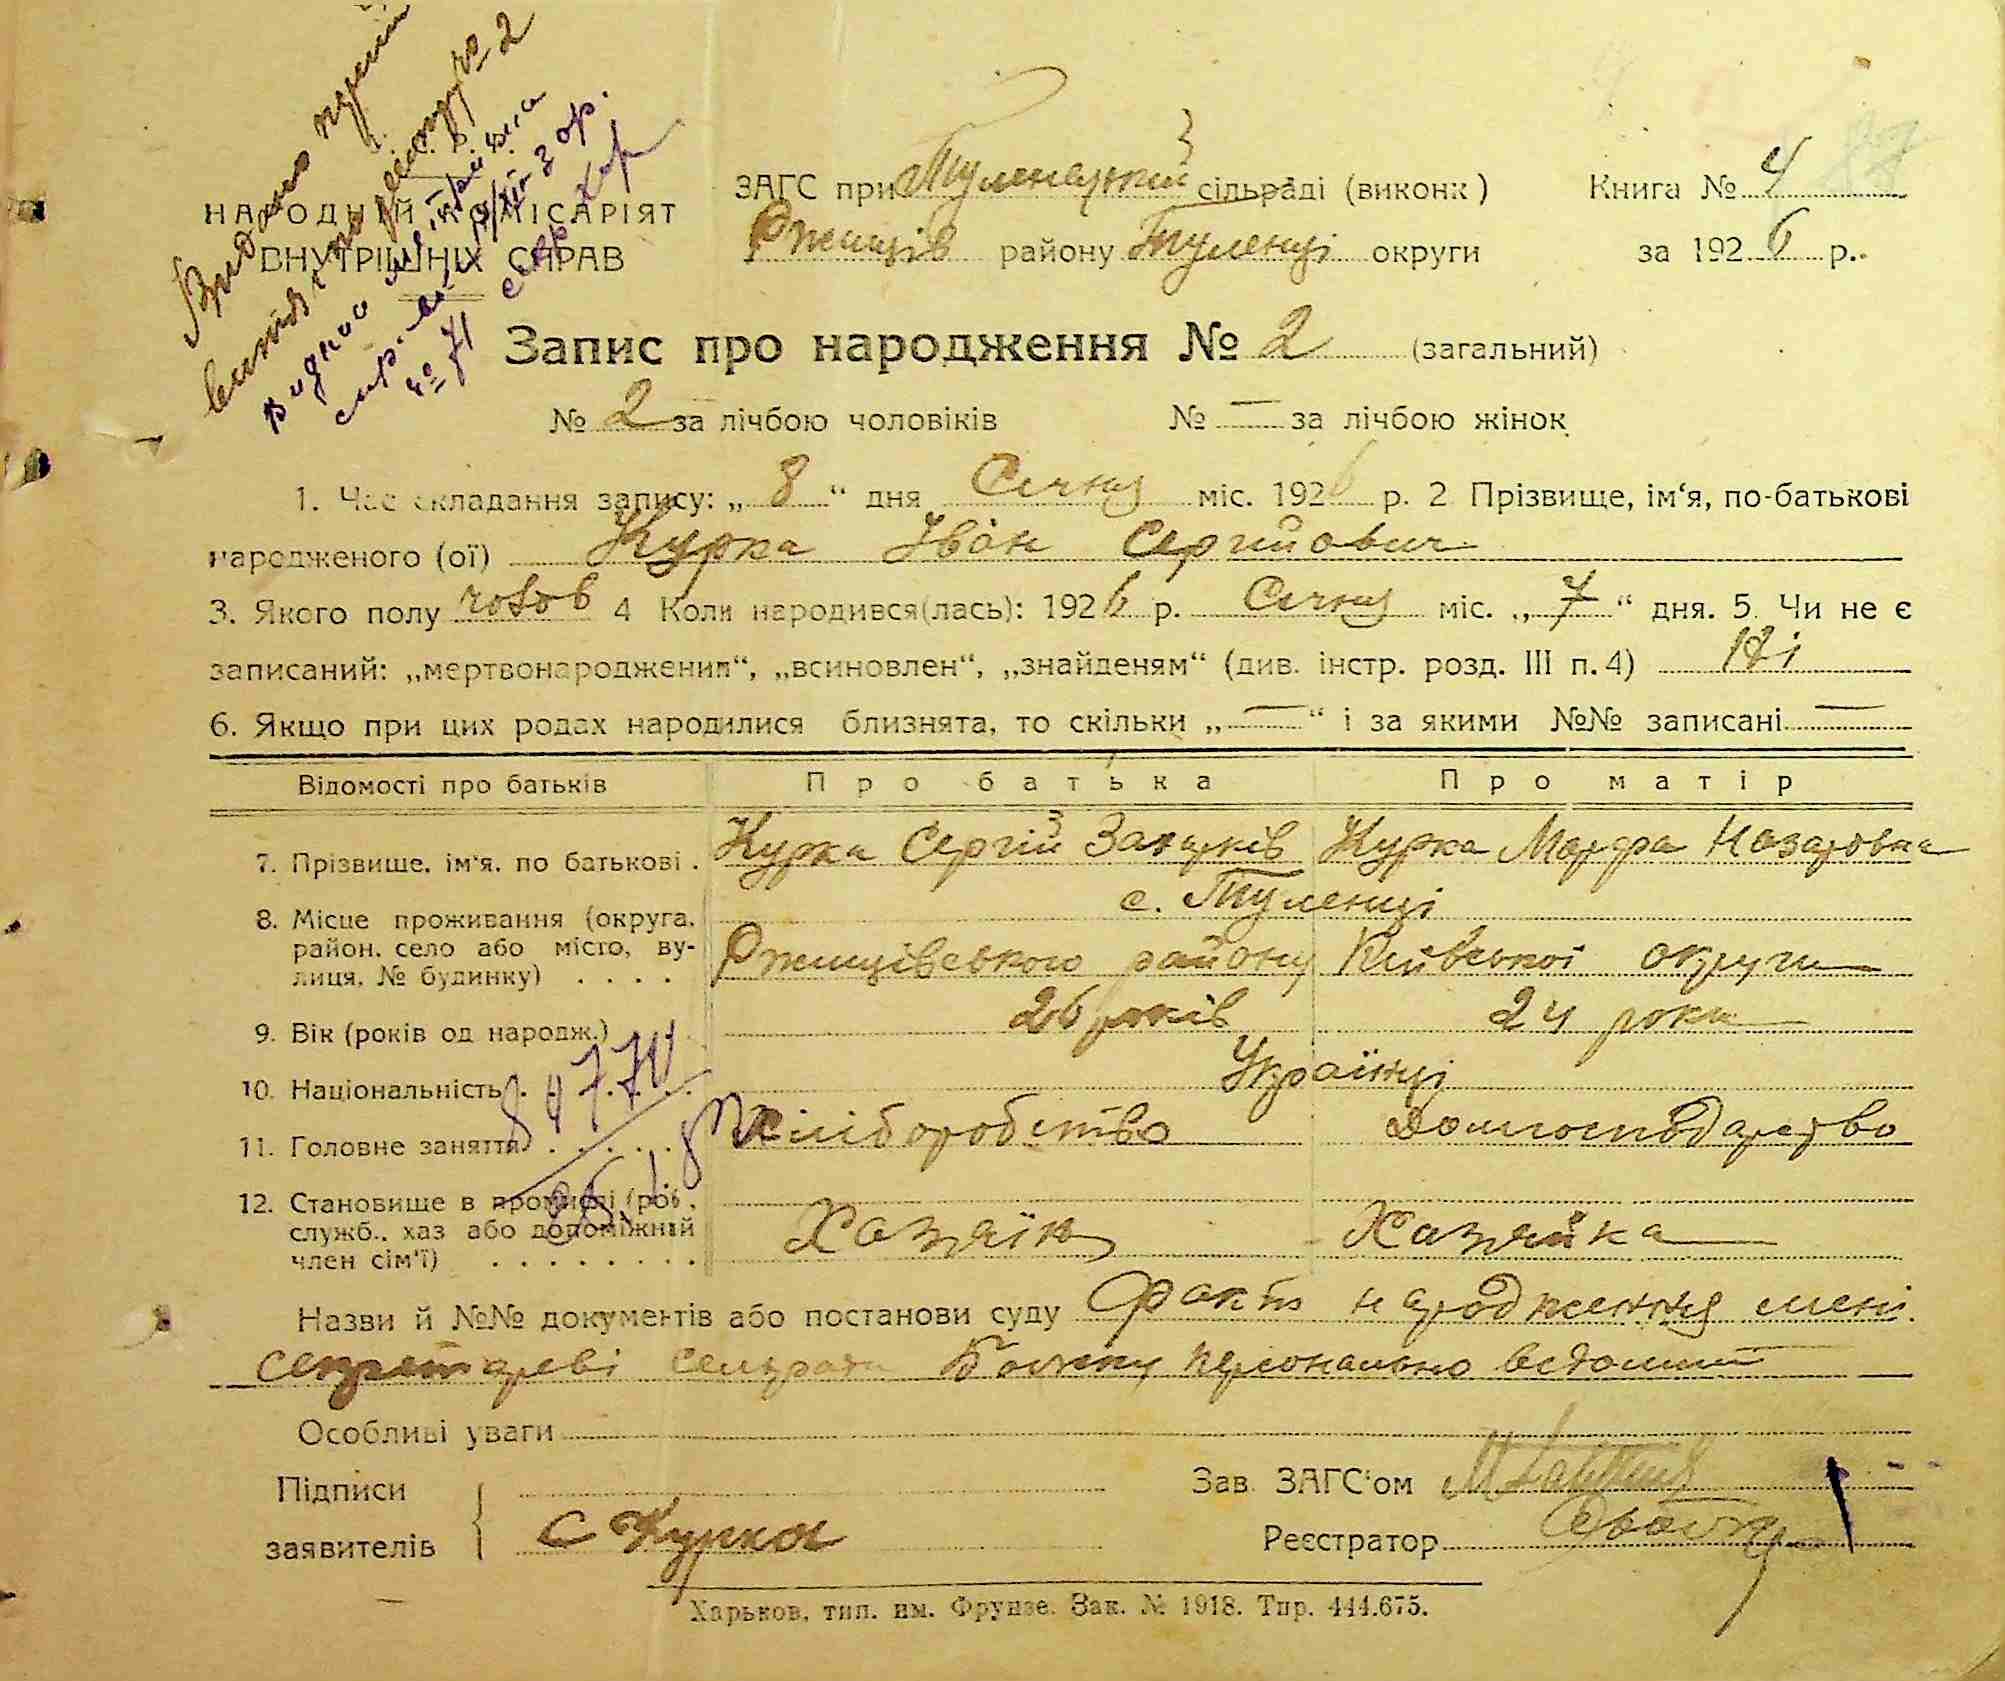 Видано
НАРОДНІЙ КОМІСАРІЯТ
ВНУТРІШНІХ СПРАВ
№ 71
ЗАГС при Туленецькій сільраді (виконк)
Ржищів району Туленці округи
Книга № 4
за 1926 р.
Запис про народження № 2 (загальний)
№ 2 за лічбою чоловіків № — за лічбою жінок
1. Час складання запису: „ 8 “ дня Січня міс. 1926 р. 2 Прізвище, ім‘я, по-батькові
народженого (ої) Курка Іван Сергійович
3. Якого полу чолов 4 Коли народився(лась): 1926 р. Січня міс. „ 7 “ дня. 5. Чи не є
записаний: „мертвонароджений“, „всиновлен“, „знайденям“ (див. інстр. розд. III п. 4) Ні
6. Якщо при цих родах народилися близнята, то скільки „ — “ і за якими №№ записані —
Відомості про батьків Про батька Про матір
7. Прізвище, ім‘я, по батькові . Курка Сергій Захарків Курка Марфа Назаровна
8. Місце проживання (округа, район, село або місто, вулиця, № будинку) . . . . с. Туленці
Ржищівського району Київської округи
9. Вік (років од народж.) 26 років 24 роки
10. Національність . . . . . Українці
11. Головне заняття . . . . . . Хліборобство Домгосподарство
12. Становище в промислі (роб., служб., хаз або допоміжній член сім‘ї) . . . . . . . . Хазяїн Хазяйка
Назви й №№ документів або постанови суду Факт народження мені
секретареві сельради персонально відомий
Особливі уваги
Підписи
заявителів С Курка
Зав. ЗАГС‘ом
Реєстратор
Харьков, тип. им. Фрунзе. Зак. № 1918. Тир. 444.675.